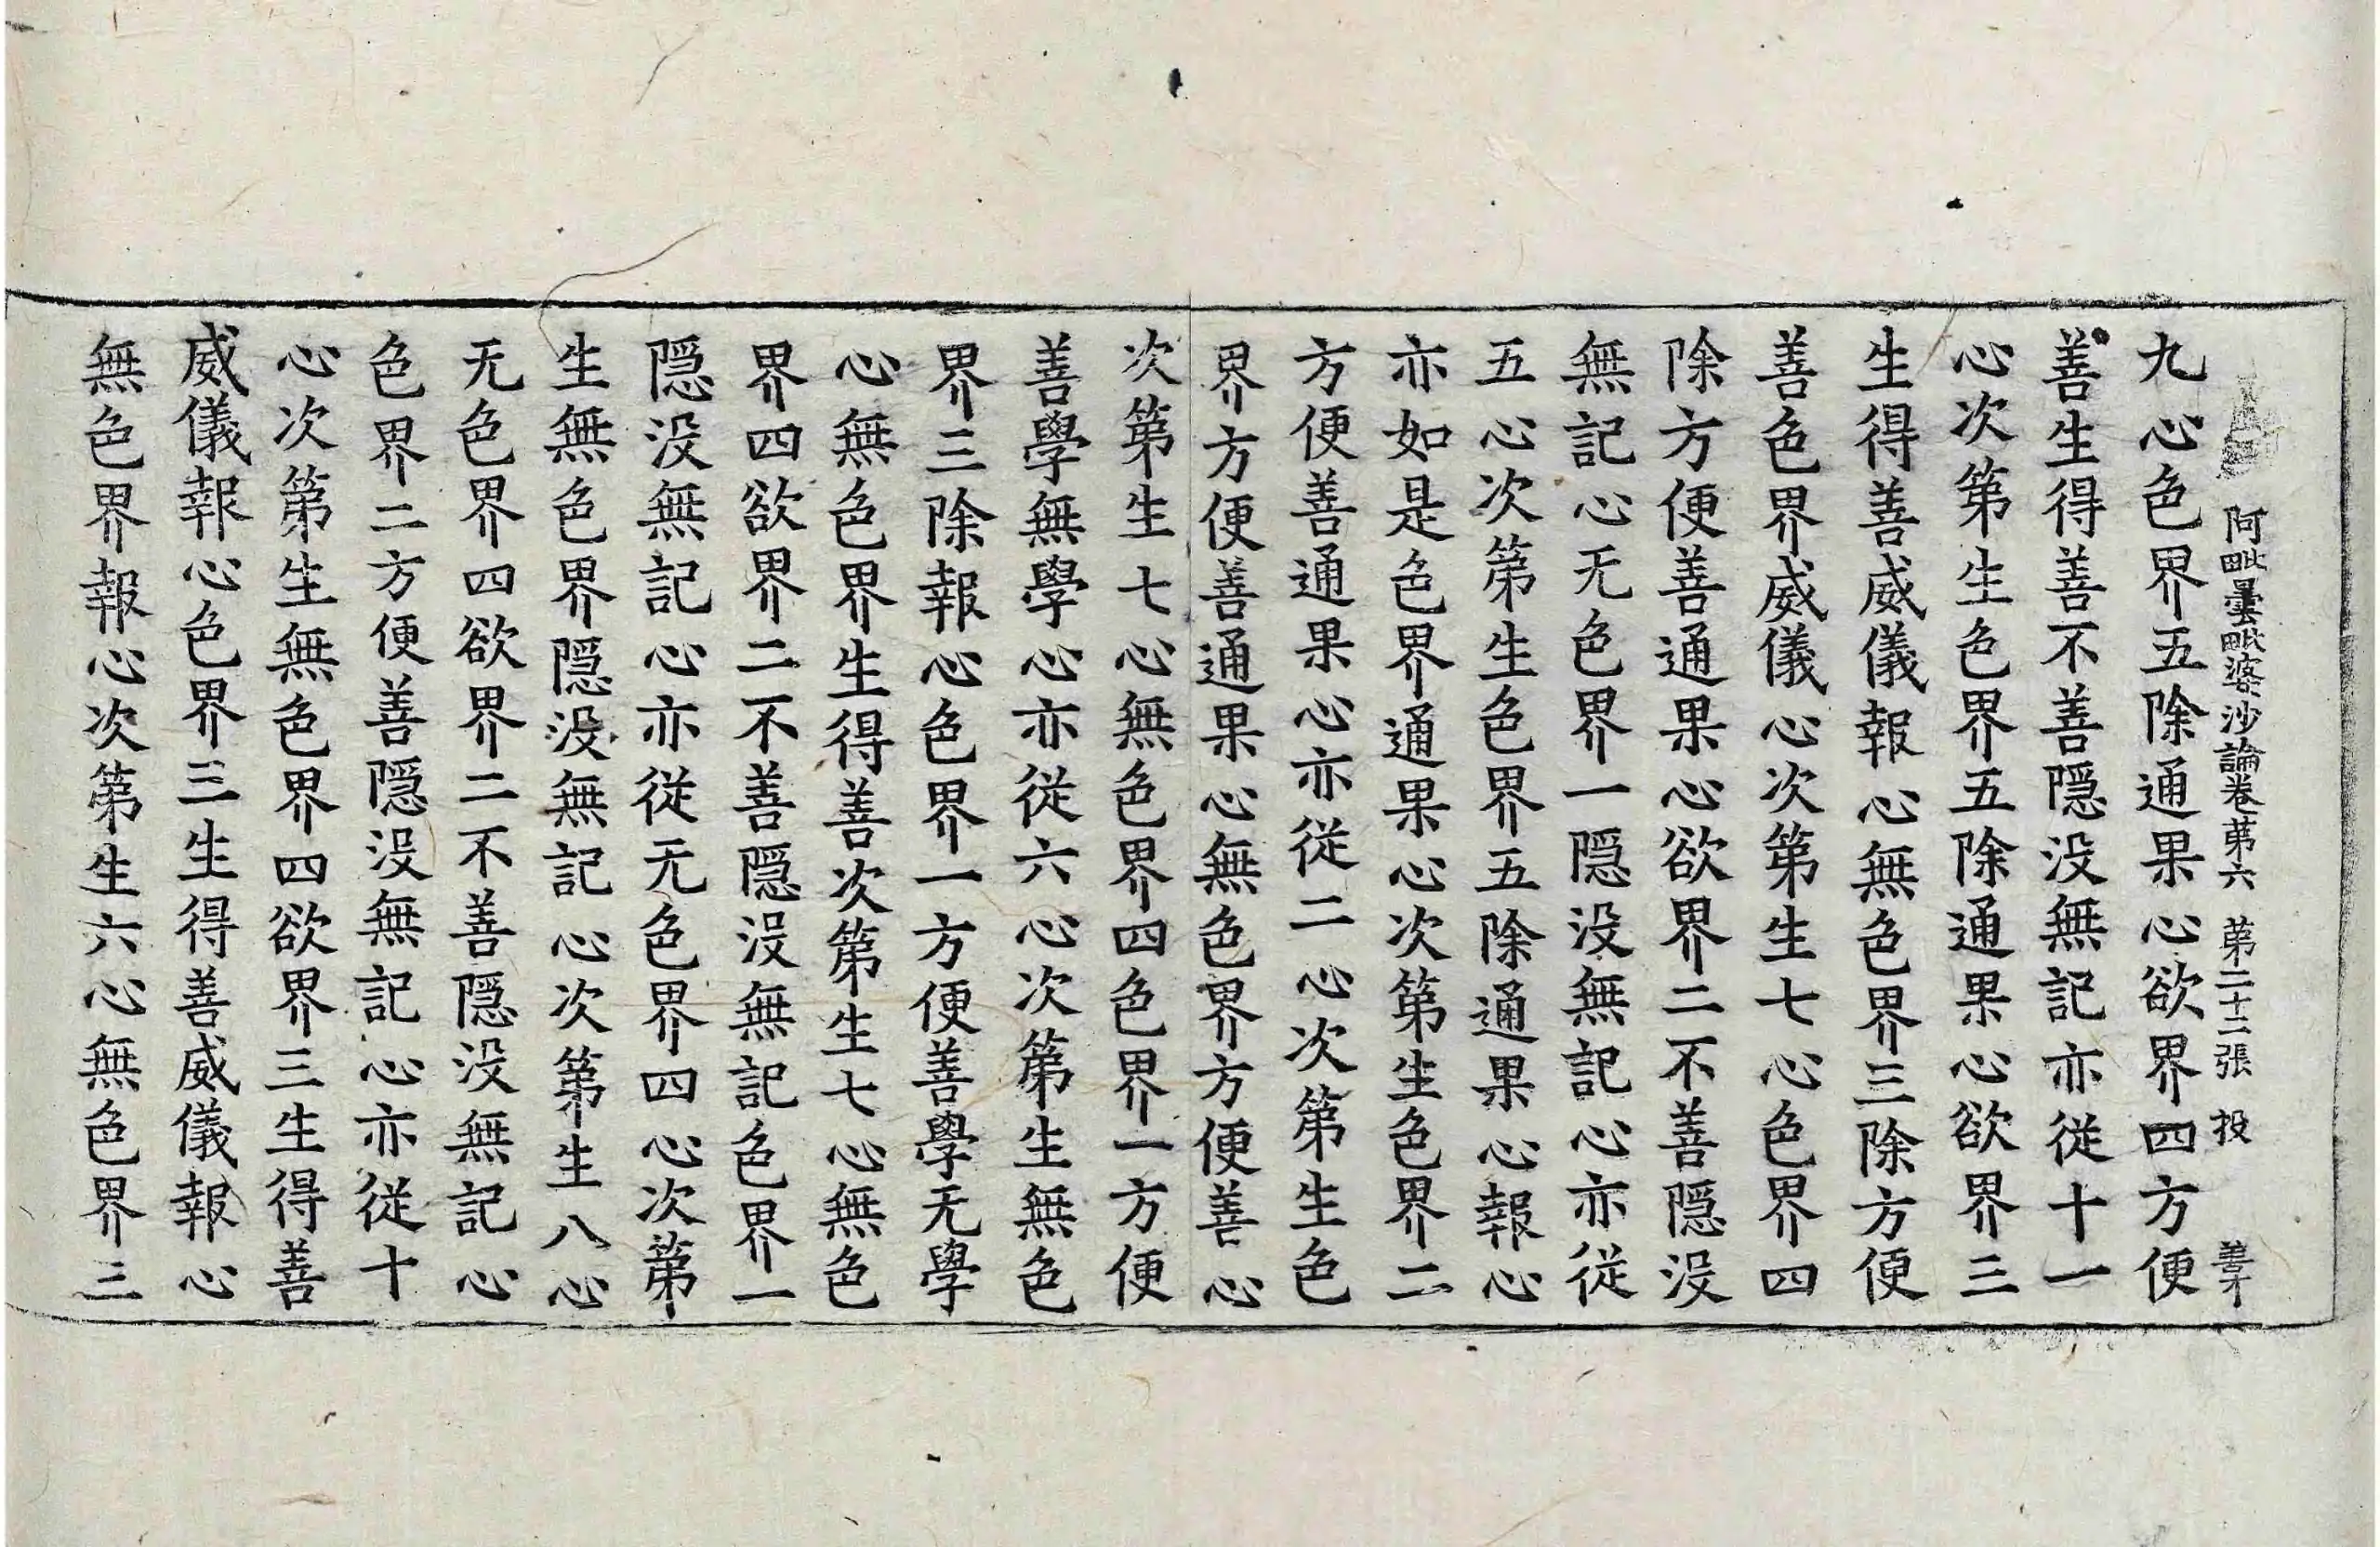 阿毗曇毗婆沙論卷第六 第二十二張 投
九心色界五除通果心欲界四方便
善生得善不善隱没無記亦從十一
心次第生色界五除通果心欲界三
生得善威儀報心無色界三除方便
善色界威儀心次第生七心色界四
除方便善通果心欲界二不善隱没
無記心无色界一隱没無記心亦從
五心次第生色界五除通果心報心
亦如是色界通果心次第生色界二
方便善通果心亦從二心次第生色
界方便善通果心無色界方便善心
次第生七心無色界四色界一方便
善學無學心亦從六心次第生無色
界三除報心色界一方便善學无學
心無色界生得善次第生七心無色
界四欲界二不善隱没無記色界一
隱没無記心亦從无色界四心次第
生無色界隱没無記心次第生八心
无色界四欲界二不善隱没無記心
色界二方便善隱没無記心亦從十
心次第生無色界四欲界三生得善
威儀報心色界三生得善威儀報心
無色界報心次第生六心無色界三